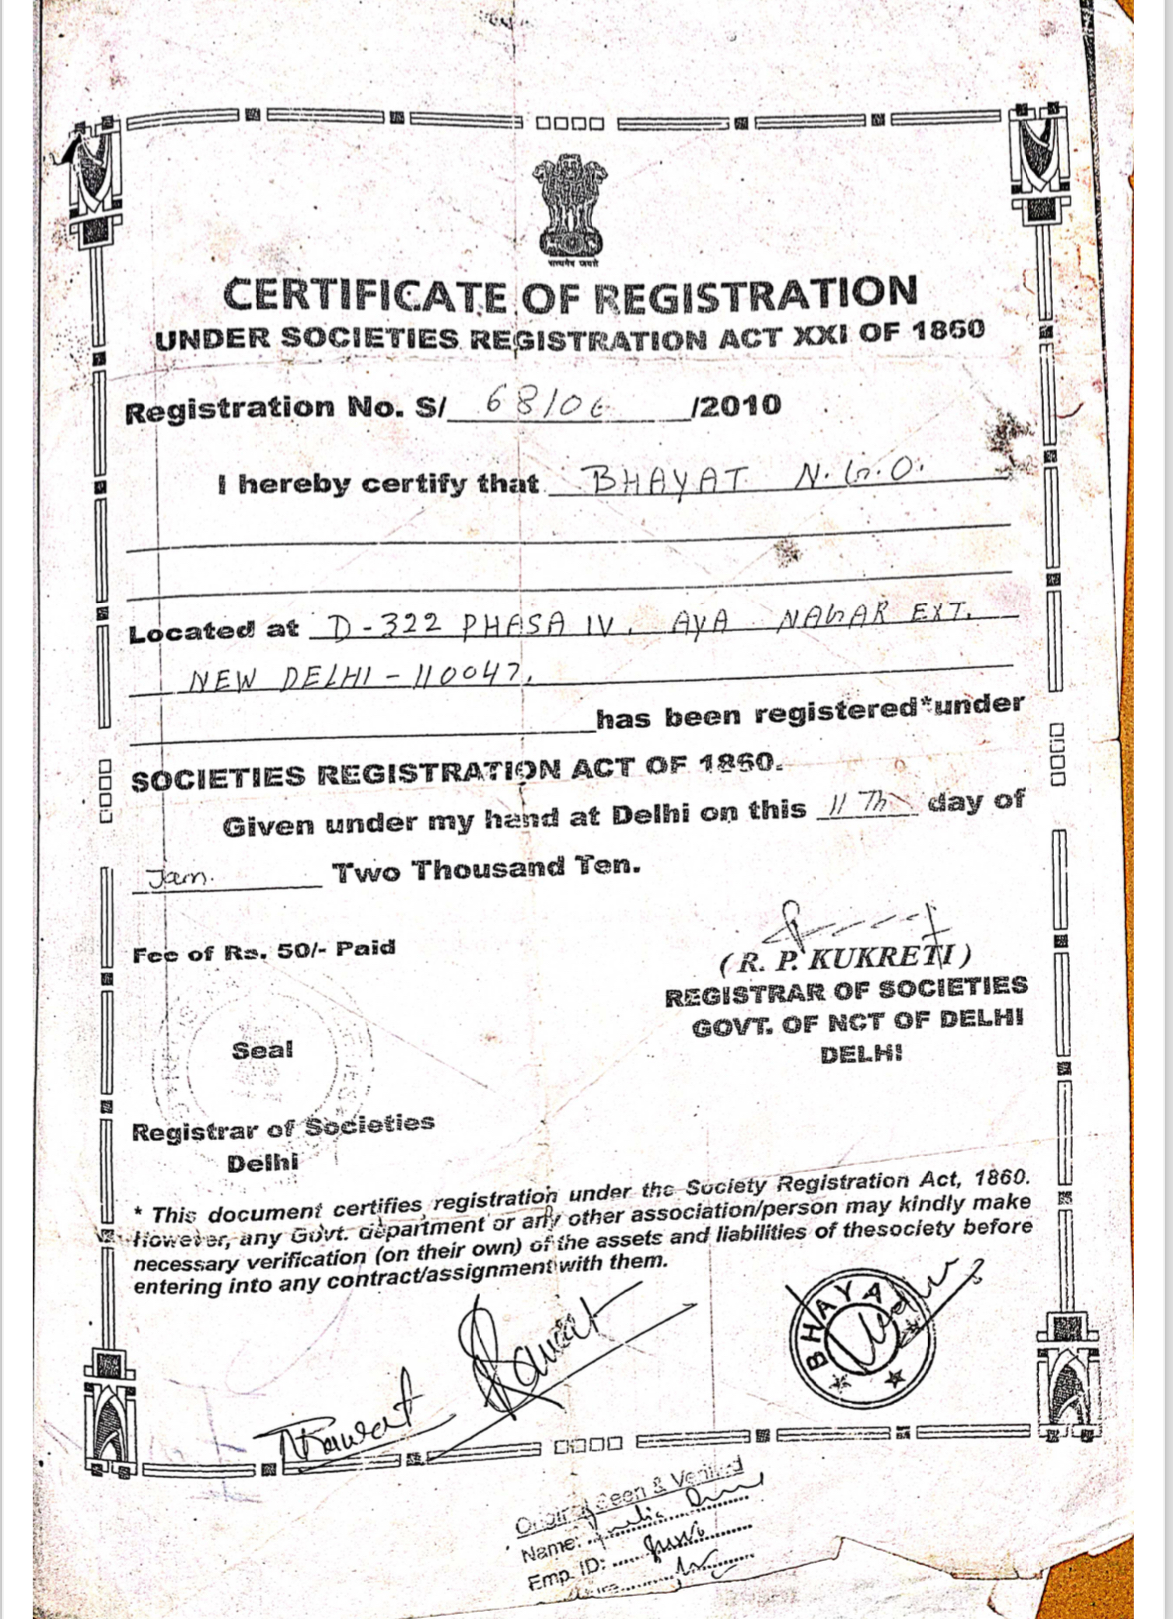 सत्यमेव जयते
CERTIFICATE OF REGISTRATION
UNDER SOCIETIES REGISTRATION ACT XXI OF 1860
Registration No. S/ 68106 /2010
I hereby certify that BHAYAT N.G.O.
Located at D-322 PHASA IV, AYA NAGAR EXT.
NEW DELHI - 110047.
has been registered*under
SOCIETIES REGISTRATION ACT OF 1860.
Given under my hand at Delhi on this 11 Th day of
Jan. Two Thousand Ten.
Fee of Rs. 50/- Paid
(R. P. KUKRETI)
REGISTRAR OF SOCIETIES
GOVT. OF NCT OF DELHI
DELHI
Seal
Registrar of Societies
Delhi
* This document certifies registration under the Society Registration Act, 1860.
However, any Govt. department or any other association/person may kindly make
necessary verification (on their own) of the assets and liabilities of thesociety before
entering into any contract/assignment with them.
Rawat
Rawat
BHAYA
Original Seen & Verified
Name:
Emp. ID: